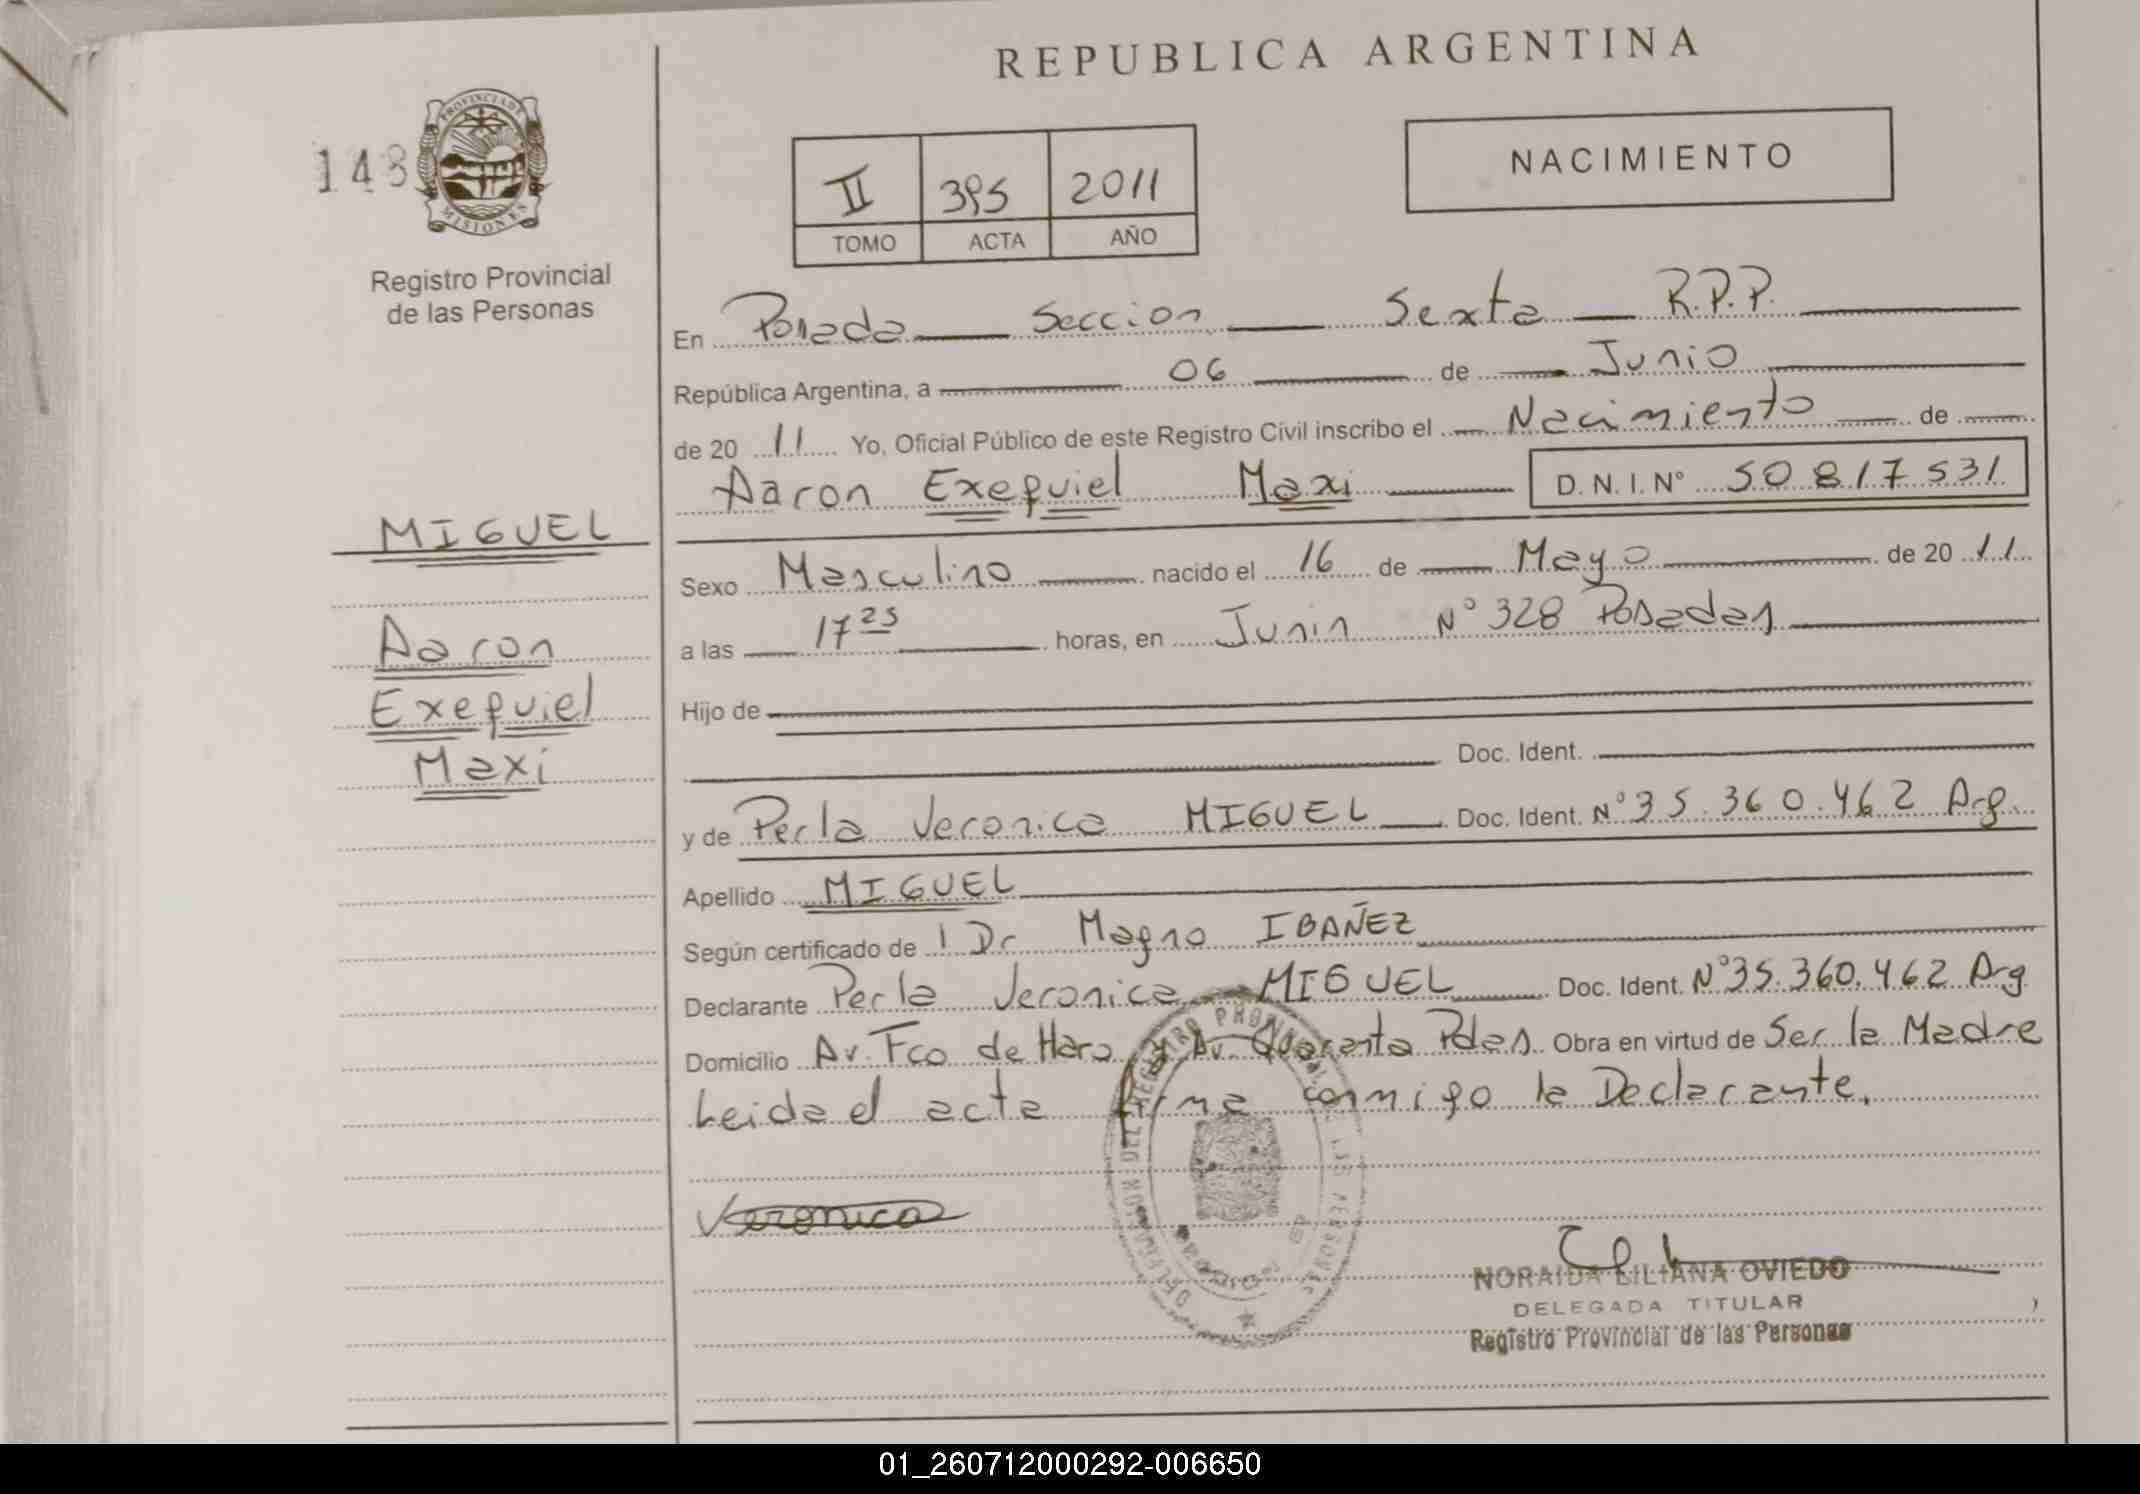 REPUBLICA ARGENTINA
143
PROVINCIA DE
MISIONES
Registro Provincial
de las Personas
II 395 2011
TOMO ACTA AÑO
NACIMIENTO
En Posada Seccion Sexta R.P.P.
República Argentina, a 06 de Junio
de 20 11 Yo, Oficial Público de este Registro Civil inscribo el Nacimiento de
Aaron Exequiel Maxi D.N.I. N° 50817531
MIGUEL
Aaron
Exequiel
Maxi
Sexo Masculino nacido el 16 de Mayo de 20 11
a las 17 25 horas, en Junin N° 328 Posadas
Hijo de
Doc. Ident.
y de Perla Veronica MIGUEL Doc. Ident. N° 35.360.462 Arg.
Apellido MIGUEL
Según certificado de l Dr Magno IBAÑEZ
Declarante Perla Veronica MIGUEL Doc. Ident. N° 35.360.462 Arg
Domicilio Av. Fco de Haro y Av. Quaranta Pdas Obra en virtud de Ser la Madre
Leida el acta firma conmigo la Declarante.
Veronica
NORAIDA LILIANA OVIEDO
DELEGADA TITULAR
Registro Provincial de las Personas
01_260712000292-006650